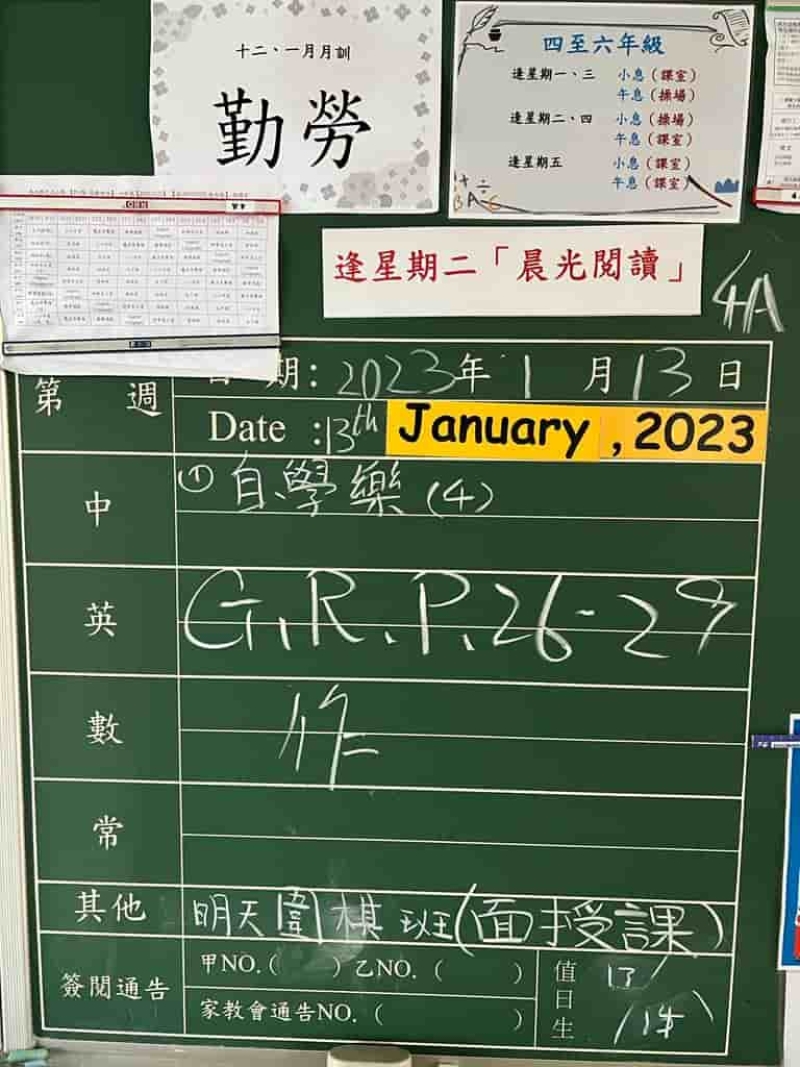 十二、一月月訓
勤勞
四至六年級
逢星期一、三 小息（課室）
午息（操場）
逢星期二、四 小息（操場）
午息（課室）
逢星期五 小息（課室）
午息（課室）
逢星期二「晨光閱讀」
4A
第 週
日 期：2023年 1 月 13 日
Date :13th January , 2023
中
① 自學樂 (4)
英
G.R.P.26-29
數
作
常
其他
明天圍棋班(面授課)
簽閱通告
甲NO.( ) 乙NO.( )
家教會通告NO.( )
值日生
13